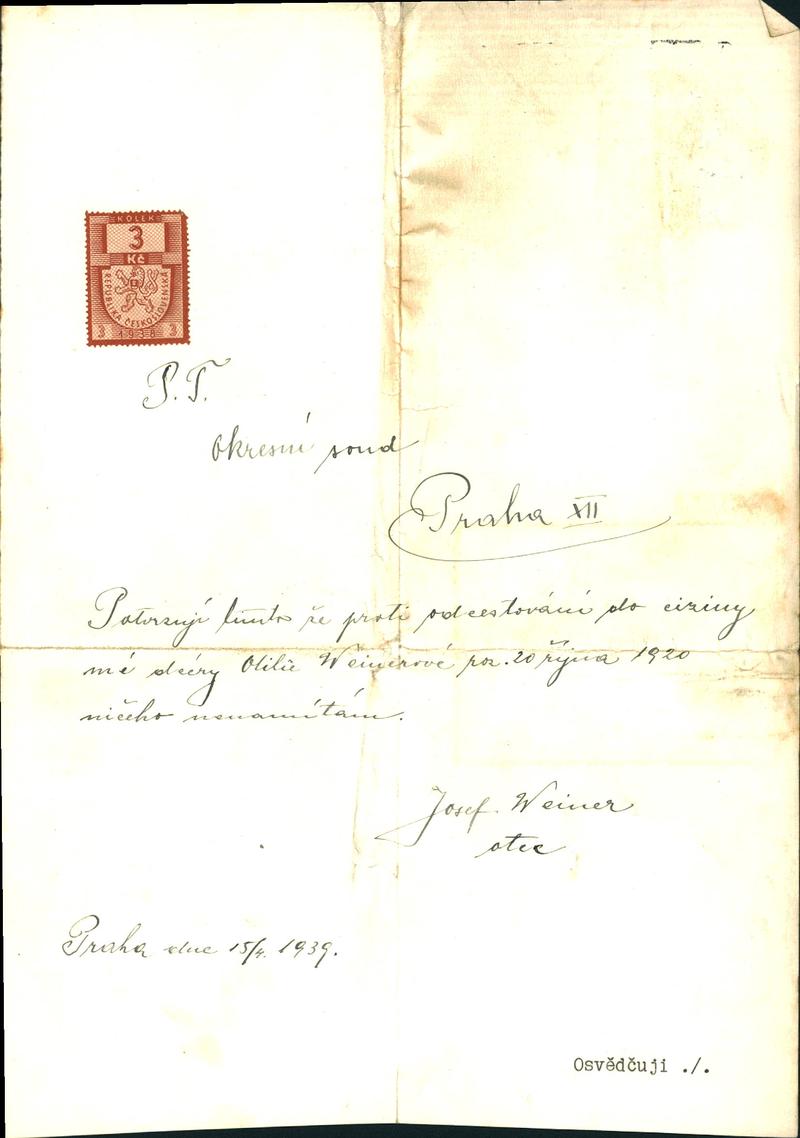 KOLEK
3
Kč
REPUBLIKA ČESKOSLOVENSKÁ
3 1938 3
P.T.
Okresní soud
Praha XII
Potvrzuji tímto že proti odcestování do ciziny
mé dcéry Otilie Weinerové roz. 20 října 1920
ničeho nenamítám.
Josef Weiner
otec
Praha dne 15/4. 1939.
Osvědčuji ./.